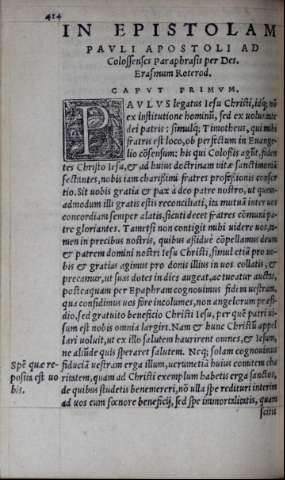 414
IN EPISTOLAM
PAVLI APOSTOLI AD
Colossenses Paraphrasis per Des.
Erasmum Roterod.
CAPVT PRIMVM.
PAVLVS legatus Iesu Christi, idq; nõ
ex institutione hominũ, sed ex voluntate
dei patris: simulq; Timotheus, qui mihi
fratris est loco, ob perfectum in Euange-
lio cõsensum: his qui Colossis agũt, fiden
tes Christo Iesu, & ad huius doctrinam vitæ sanctimoniã
sectantes, nobis tam charissimi fratres professionis consor
tio. Sit uobis gratia & pax a deo patre nostro, ut quem-
admodum illi gratis estis reconciliati, ita mutuã inter uos
concordiam semper alatis, sicuti decet fratres cõmuni pa-
tre gloriantes. Tametsi non contigit mihi uidere uos, ta-
men in precibus nostris, quibus assiduè cõpellamus deum
& patrem domini nostri Iesu Christi, simul etiã pro uo-
bis & gratias agimus pro donis illius in uos collatis, &
precamur, ut suas dotes in dies augeat, ac tueatur auctas,
posteaquam per Epaphram cognouimus fidem uestram,
qua confidimus uos fore incolumes, non angelorum præsi-
dio, sed gratuito beneficio Christi Iesu, per quẽ patri ui-
sum est nobis omnia largiri. Nam & hunc Christũ appel
lari uoluit, ut ex illo salutem haurirent omnes, & Iesum,
ne aliũde quis speraret salutem. Neq; solam cognouimus
Spẽ quæ re- fiduciã uestram erga illum, uerumetiã huius comitem cha
posita est uo ritatem, quam ad Christi exemplum habetis erga sanctos,
bis. de quibus studetis benemereri, nõ ulla spe redituri interim
ad uos cum fœnore beneficij, sed spe immortalitatis, quam
scitis